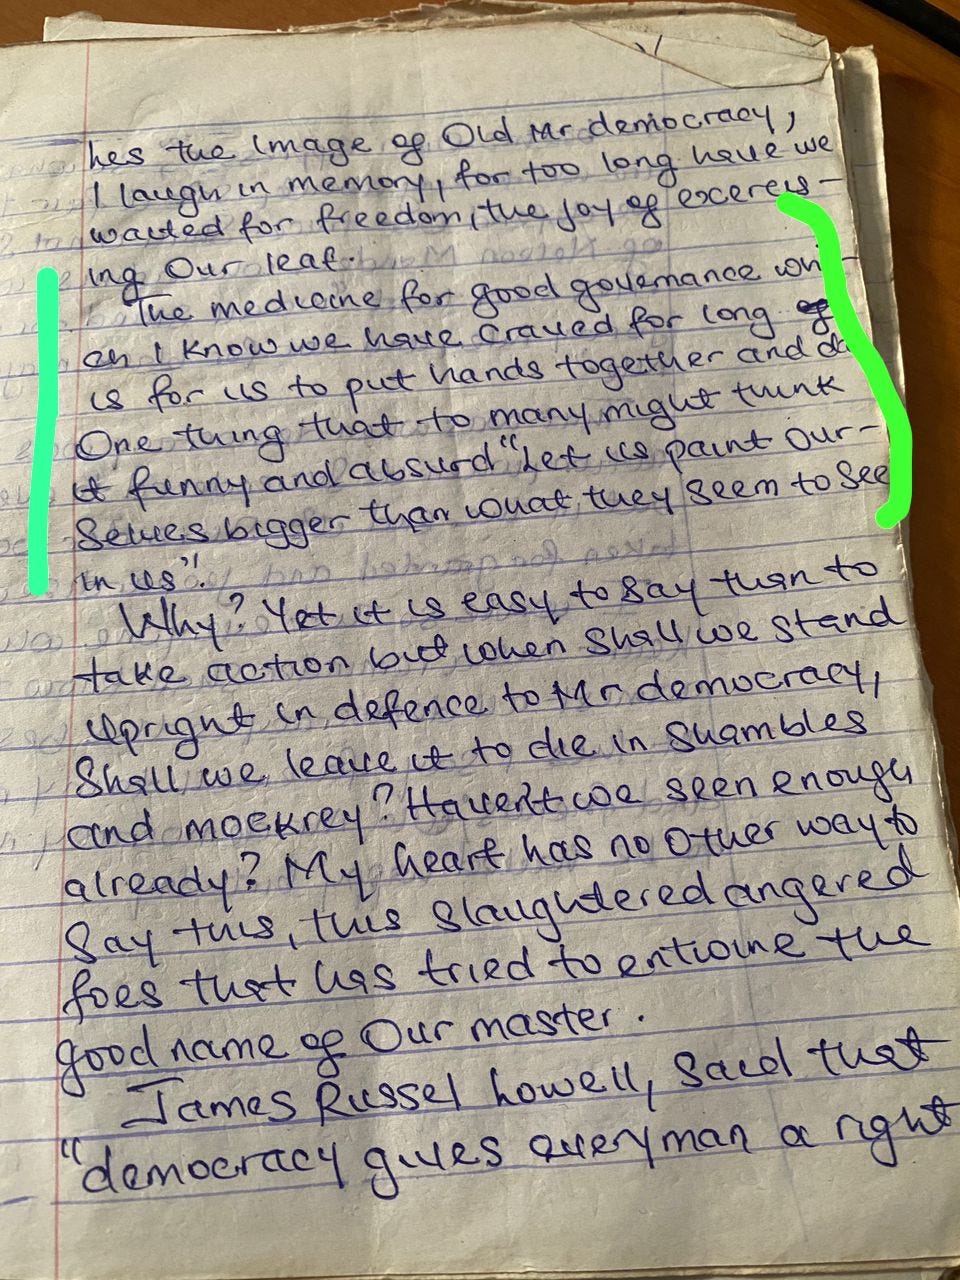 hes the image of Old Mr democracy,
I laugh in memory, for too long have we
waited for freedom, the joy of excercis-
ing Our leaf.
The medicine for good governance whi-
ch I know we have craved for long
is for us to put hands together and do
One thing that to many might think
it funny and absurd "Let us paint Our-
selves bigger than what they seem to see
in us".
Why? Yet it is easy to say than to
take action but when shall we stand
upright in defence to Mr democracy,
Shall we leave it to die in shambles
and mockrey? Havent we seen enough
already? My heart has no Other way to
say this, this slaughtered angered
foes that has tried to entwine the
good name of Our master.
James Russel Lowell, said that
"democracy gives every man a right